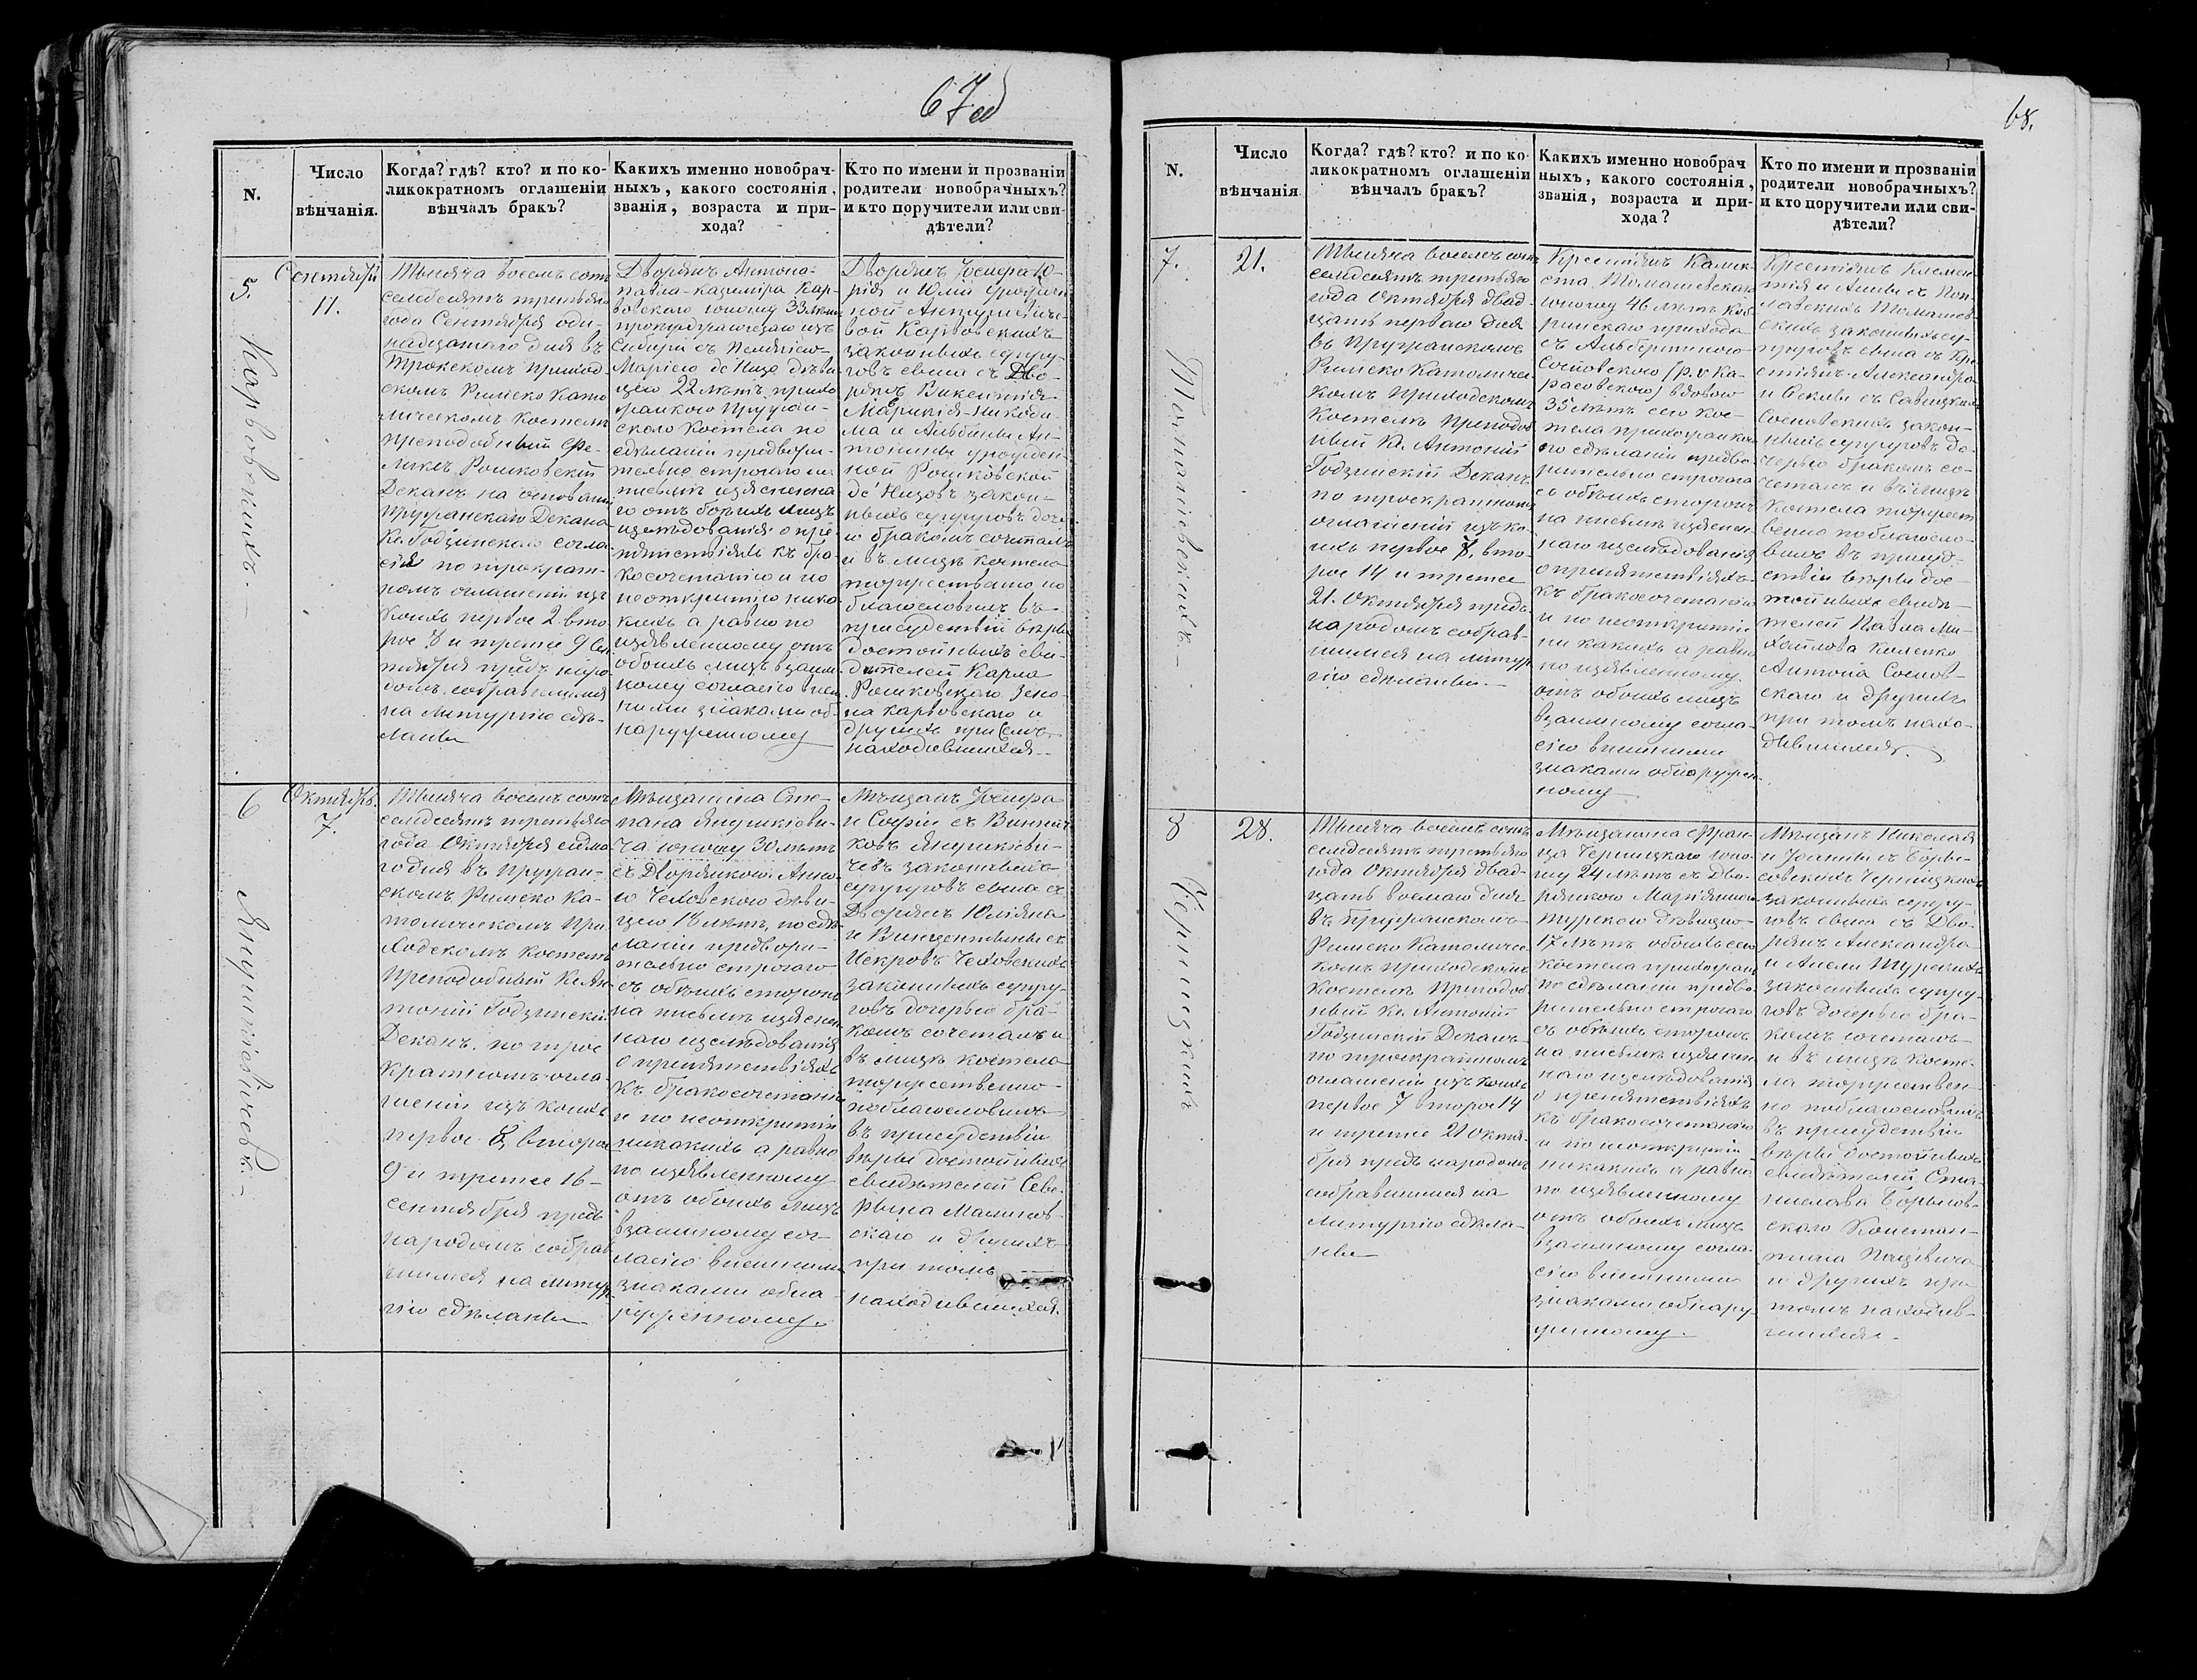 67об
N.
Число
вѣнчанія.
Когда? гдѣ? кто? и по ко-
ликократномъ оглашеніи
вѣнчалъ бракъ?
Какихъ именно новобрач-
ныхъ, какого состоянія,
званія, возраста и при-
хода?
Кто по имени и прозваніи
родители новобрачныхъ?
и кто поручители или сви-
дѣтели?
5.
Карвовскихъ.
Сентября
11.
Тысяча восемь сотъ
семдесятъ третьяго
года Сентября оди-
надцатаго дня въ
скомъ Римско Като
лическомъ Костелѣ
преподобный Фе-
ликсъ Рошковскій
Деканъ на основаніи
Пружанскаго Декана
Кс. Годзинскаго согла
сія по трократ-
номъ оглашеніи изъ
коихъ первое 2. вто
рое 8 и третее 9 Сен
тября предъ наро
домъ собравшимся
на Литургію сдѣ-
ланы
Дворянъ Антона-
павла-казиміра Кар-
вовскаго юношу 33 лѣтъ
Сибири съ
Маріею де Низо дѣви
цею 22 лѣтъ прихо
жанкою Пружан-
скаго Костела по
сдѣланіи предвори-
тельно строгаго на
письмѣ изъясненна
го отъ боихъ лицъ
изслѣдованія о пре
пятствіяхъ къ бра-
косочетанію и по
неоткрытію ника
кихъ а равно по
изъявленному отъ
обоихъ лицъ взаим
ному согласію внеш
ними знаками об-
наруженному
Дворянъ Іосифа Ю-
рія и Юліи урожден
ной
вой Карвовскихъ
законныхъ супру-
говъ сына съ Дво-
рянъ Викентія-
Маврикія-Никоди-
ма и Альбины Ан-
тонины урожден-
ной Рошковской
де Низовъ закон-
ныхъ супруговъ доче
ю бракомъ сочеталъ
и въ лицѣ костела
торжествено по
благословилъ въ
присудствіи вѣры
достойныхъ сви-
дѣтелей Карла
Рошковскаго Зено-
на Карвовскаго и
другихъ при семъ
находившихся.
6
Янушкіевичевъ.
Октября.
7.
Тысяча восемь сотъ
семдесятъ третьяго
года Октября седма
го дня въ Пружан-
скомъ Римско Ка-
толическомъ При
ходскомъ Костелѣ
Преподобный Кс. Ан
тоній Годзинскій
Деканъ. по трое
кратномъ огла-
шеніи изъ коихъ
первое 8, второе
9 и третее 16-
сентября предъ
народомъ собрав
шимся на Литур
гію сдѣланы
Мѣщанина Сте-
пана Янушкіеви-
ча юношу 30 лѣтъ
съ Дворянкою Анно
ю Чеховскою дѣви-
цею 18 лѣтъ, по сдѣ
ланіи предвори-
тельно строгаго
съ обѣихъ сторонъ
на письмѣ изъяснен
наго изслѣдованія
о препятствіяхъ
къ бракосочетанію
и по неоткрытіи
никакихъ а равно
по изъявленному
отъ обоихъ лицъ
взаимному сог
ласію внешними
знаками обна-
руженному.
Мѣщанъ Іосифа
и Софіи съ
ковъ Янушкіеви-
чевъ законныхъ
супруговъ сына съ
Дворянъ Юліяна
и Винцентины съ
Искровъ Чеховскихъ
законныхъ супру-
говъ дочерью бра-
комъ сочеталъ и
въ лицѣ костела
торжественно
поблагословилъ
въ присудствіи
вѣры достойныхъ
свидѣтелей Севе-
рына Малинов-
скаго и другихъ
при томъ
находившихся.
68.
N.
Число
вѣнчанія
Когда? гдѣ? кто? и по ко-
ликократномъ оглашеніи
вѣнчалъ бракъ?
Какихъ именно новобрач
ныхъ, какого состоянія,
званія, возраста и при-
хода?
Кто по имени и прозваніи
родители новобрачныхъ?
и кто поручители или сви-
дѣтели?
7.
Томашевскихъ.
21.
Тысяча восемь сотъ
семдесятъ третьяго
года Октября двад-
цать перваго дня
въ Пружанскомъ
Римско Католичес-
комъ Приходскомъ
Костелѣ Преподоб
ный Кс. Антоній
Годзинскій Деканъ
по троекратномъ
оглашеніи изъ ко-
ихъ первое 7, вто-
рое 14 и третее
21. Октября предъ
народомъ собрав-
шимся на Литур
гію сдѣланы.
Крестьянъ Калик-
ста Томашевскаго
юношу 46 лѣтъ Коб
ринскаго прихода
съ Альбертиною
Сосновскою (р. v Ка-
расовскою) вдовою
35 лѣтъ сего кос-
тела прихожанкою
по сдѣланіи предво
рительно строгаго
съ обѣихъ сторонъ
на письмѣ изъяснен
наго изслѣдованія
о препятствіяхъ
къ бракосочетанію
и по неоткрытіи
ни какихъ а равно
по изъявленному
отъ обоихъ лицъ
взаимному согла-
сію внешними
знаками обнаружен
ному
Крестьянъ Клемен-
тія и Анны съ Поп-
лавскихъ Томашев-
скихъ законныхъ су-
пруговъ сына съ Кре
стьянъ Александра
и Феклы съ Савицкихъ
Сосновскихъ закон-
ныхъ супруговъ до-
черью бракомъ со-
четалъ и въ лицѣ
Костела торжест
венно поблагосло-
вилъ въ присуд-
ствіи вѣры дос-
тойныхъ свидѣ-
телей Павла Ми-
хайлова
Антона Соснов-
скаго и другихъ
при томъ нахо-
дившихся.
8
Черницкихъ
28.
Тысяча восемь сотъ
семдесятъ третьяго
года Октября двад-
цать восмаго дня
въ Пружанскомъ
Римско Католичес
комъ Приходскомъ
Костелѣ Преподоб
ный Кс. Антоній
Годзинскій Деканъ
по троекратномъ
оглашеніи изъ коихъ
первое 7 второе 14
и третее 21 Октя-
бря предъ народомъ
собравшимся на
Литургію сдѣла-
ны
Мѣщанина Фран-
ца Черницкаго юно-
шу 24 лѣтъ съ Дво-
рянкою Маріянною
Турскою дѣвицею
17 лѣтъ обоихъ сего
костела прихожанъ
по сдѣланіи предво
рительно строгаго
съ обѣихъ сторонъ
на письмѣ изъяснен
наго изслѣдованія
о препятствіяхъ
къ бракосочетанію
и по неоткрытіи
никакихъ а равно
по изъявленному
отъ обоихъ лицъ
взаимному согла-
сію внешними
знаками обнару-
женному.
Мѣщанъ Николая
и Іоанны съ Боры-
совскихъ Черницкихъ
законныхъ супру-
говъ сына съ Дво-
рянъ Александра
и Анели Турскихъ
законныхъ супру-
говъ дочерью бра-
комъ сочеталъ
и въ лицѣ Косте-
ла торжествен-
но поблагословилъ
въ присудствіи
вѣры достойныхъ
свидѣтелей Ста-
нислава Борысов-
скаго Констан-
тина Пацевича
и другихъ при
томъ находив-
шихся.